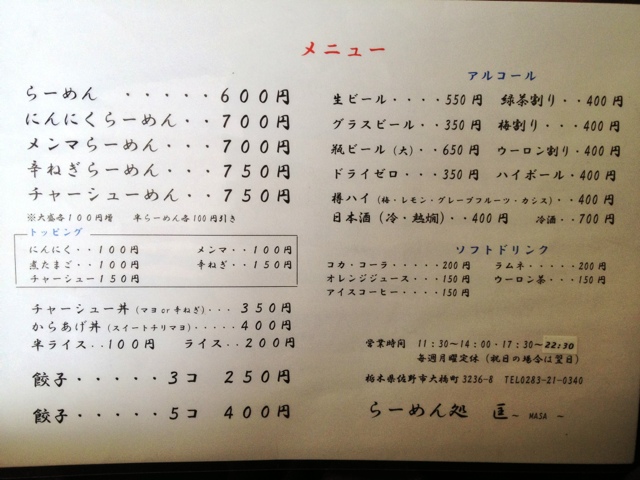 メニュー
らーめん ・・・・・600円
にんにくらーめん・・700円
メンマらーめん・・・700円
辛ねぎらーめん・・・750円
チャーシューめん・・750円
※大盛各100円増 半らーめん各100円引き
トッピング
にんにく・・100円 メンマ・・100円
煮たまご・・100円 辛ねぎ・・150円
チャーシュー150円
チャーシュー丼(マヨor辛ねぎ)・・・350円
からあげ丼(スイートチリマヨ)・・・・・400円
半ライス・・100円 ライス・・200円
餃子・・・・・3コ 250円
餃子・・・・・5コ 400円
アルコール
生ビール・・・・550円 緑茶割り・・400円
グラスビール・・350円 梅割り・・・400円
瓶ビール(大)・・650円 ウーロン割り・400円
ドライゼロ・・・350円 ハイボール・400円
樽ハイ(梅・レモン・グレープフルーツ・カシス)・・400円
日本酒(冷・熱燗)・・400円 冷酒・・700円
ソフトドリンク
コカ・コーラ・・・・・200円 ラムネ・・・・・200円
オレンジジュース・・・150円 ウーロン茶・・・150円
アイスコーヒー・・・・150円
営業時間 11:30~14:00・17:30~22:30
毎週月曜定休(祝日の場合は翌日)
栃木県佐野市大橋町3236-8 TEL0283-21-0340
らーめん処 匡~ MASA ~